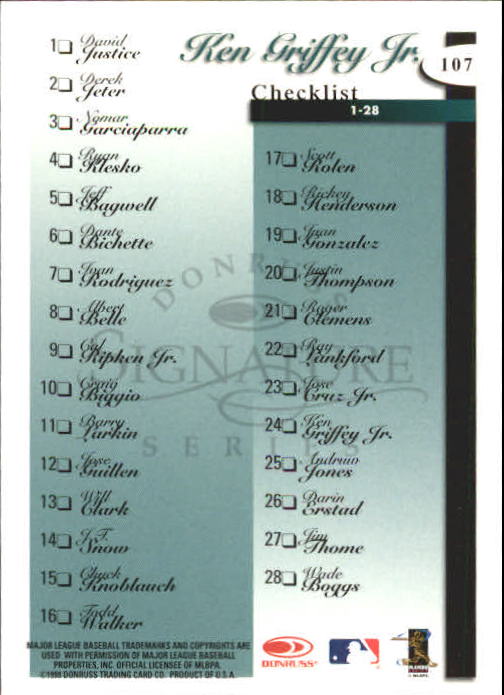 Ken Griffey Jr.
107
Checklist
1-28
1 David Justice
2 Derek Jeter
3 Nomar Garciaparra
4 Ryan Klesko
5 Jeff Bagwell
6 Dante Bichette
7 Ivan Rodriguez
8 Albert Belle
9 Cal Ripken Jr.
10 Craig Biggio
11 Barry Larkin
12 Jose Guillen
13 Will Clark
14 J.T. Snow
15 Chuck Knoblauch
16 Todd Walker
17 Scott Rolen
18 Rickey Henderson
19 Juan Gonzalez
20 Justin Thompson
21 Roger Clemens
22 Ray Lankford
23 Jose Cruz Jr.
24 Ken Griffey Jr.
25 Andruw Jones
26 Darin Erstad
27 Jim Thome
28 Wade Boggs
DONRUSS
SIGNATURE
SERIES
MAJOR LEAGUE BASEBALL TRADEMARKS AND COPYRIGHTS ARE
USED WITH PERMISSION OF MAJOR LEAGUE BASEBALL
PROPERTIES, INC. OFFICIAL LICENSEE OF MLBPA.
©1998 DONRUSS TRADING CARD CO. PRODUCT OF U.S.A.
DONRUSS